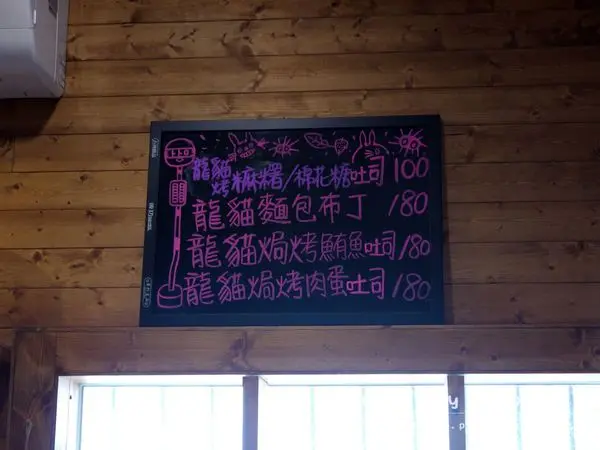 龍貓烤麻糬/棉花糖吐司 100
龍貓麵包布丁 180
龍貓焗烤鮪魚吐司 180
龍貓焗烤肉蛋吐司 180